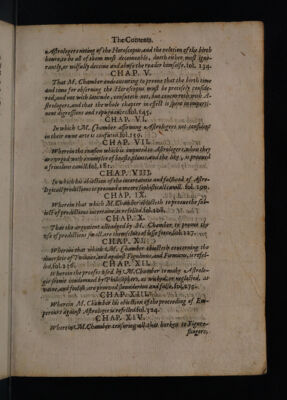 The Contents.
Astrologers citing of the Horoscopus, and the election of the birth
houre, to be all of them most detestable, doeth either most igno-
rantly, or wilfully deceiue and abuse the reader himselfe. fol. 134.
CHAP. V.
That M. Chamber endeauouring to proue that the birth time
and time for obseruing the Horoscopus must be precisely conside-
red, and not with latitude, confuteth not, but concurreth with A-
strologers, and that the whole chapter in effect is spent in imperti-
nent digressions and repugnancies. fol. 145.
CHAP. VI.
In which M. Chamber assaming Astrologers not confuting
in their owne arte is confuted. fol. 159.
CHAP. VII.
Wherein the that is imputed to Astrologers, when they
are vrged with examples of beasts, plants, and the like, is prooued
a friuolous cauill. fol. 181.
CHAP. VIII.
In which his obiection of the incertaintie and falshood of Astro-
logicall predictions is prooued a meere sophisticall cauill. fol. 190.
CHAP. IX.
Wherein that which M. Chamber obiecteth to prooue the sub-
iect of predictions incertaine, is refelled. fol. 208.
CHAP. X.
That the argument alledged by M. Chamber, to prooue the
vse of predictions fol. 227.
CHAP. XI.
Wherein that which M. Chamber obiecteth concerning the
diuersitie of Twinnes, and against Figulus, and Firmicus, is refel-
led. fol. 236.
CHAP. XII.
Wherein the proofes vsed by M. Chamber to make Astrolo-
gie condemned by Philosophers, as wicked, or neglected, as
vaine, and foolish, are prooued slaunderous and false. fol. 275.
CHAP. XIII.
Wherein M. Chamber his obiection of the proceeding of Em-
perours against Astrologers is refelled. fol. 324.
CHAP. XIV.
Wherein M. Chamber censuring all that harken to Figure-
flingers,